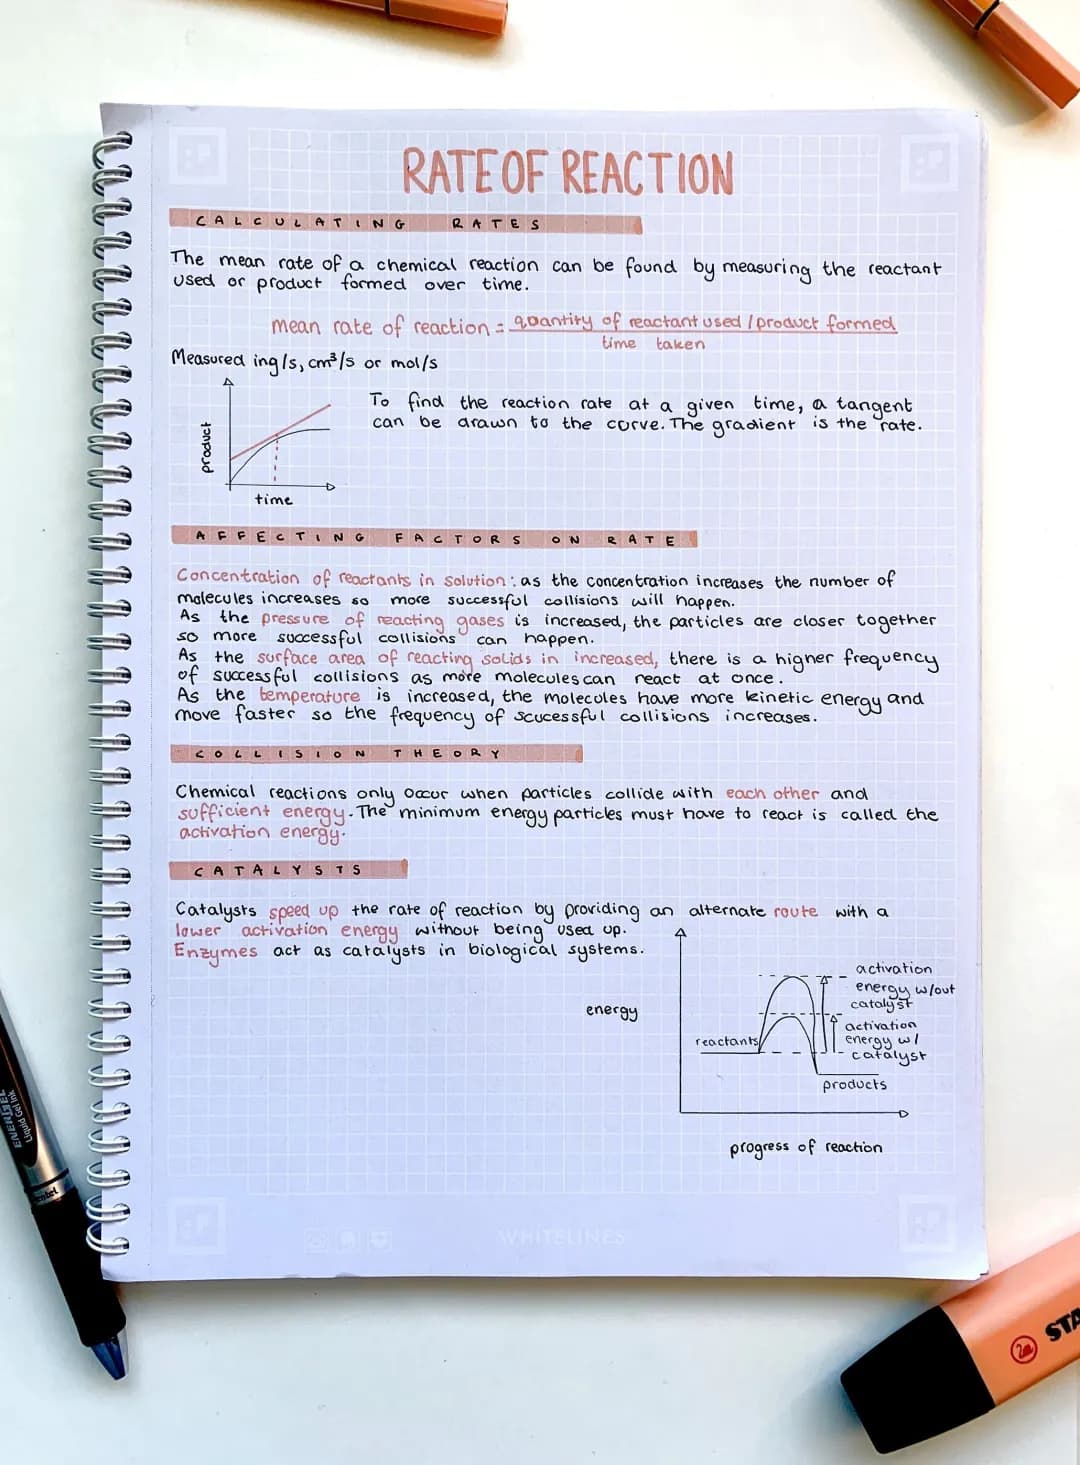 RATE OF REACTION
CALCULATING RATES
The mean rate of a chemical reaction can be found by measuring the reactant
used or product formed over time.
mean rate of reaction = quantity of reactant used / product formed
time taken
Measured in g/s, cm³/s or mol/s
To find the reaction rate at a given time, a tangent
can be drawn to the curve. The gradient is the rate.
product
time
AFFECTING FACTORS ON RATE
Concentration of reactants in solution: as the concentration increases the number of
molecules increases so more successful collisions will happen.
As the pressure of reacting gases is increased, the particles are closer together
so more successful collisions can happen.
As the surface area of reacting solids in increased, there is a higher frequency
of successful collisions as more molecules can react at once.
As the temperature is increased, the molecoles have more kinetic energy and
move faster so the frequency of scucessful collisions increases.
COLLISION THEORY
Chemical reactions only occur when particles collide with each other and
sufficient energy. The minimum energy particles must have to react is called the
activation energy.
CATALYSTS
Catalysts speed up the rate of reaction by providing an alternate route with a
lower activation energy without being used up.
Enzymes act as catalysts in biological systems.
energy
activation
energy w/out
catalyst
activation
energy w/
catalyst
reactants
products
progress of reaction
WHITELINES
ENERGEL
Liquid Gel Ink
STA